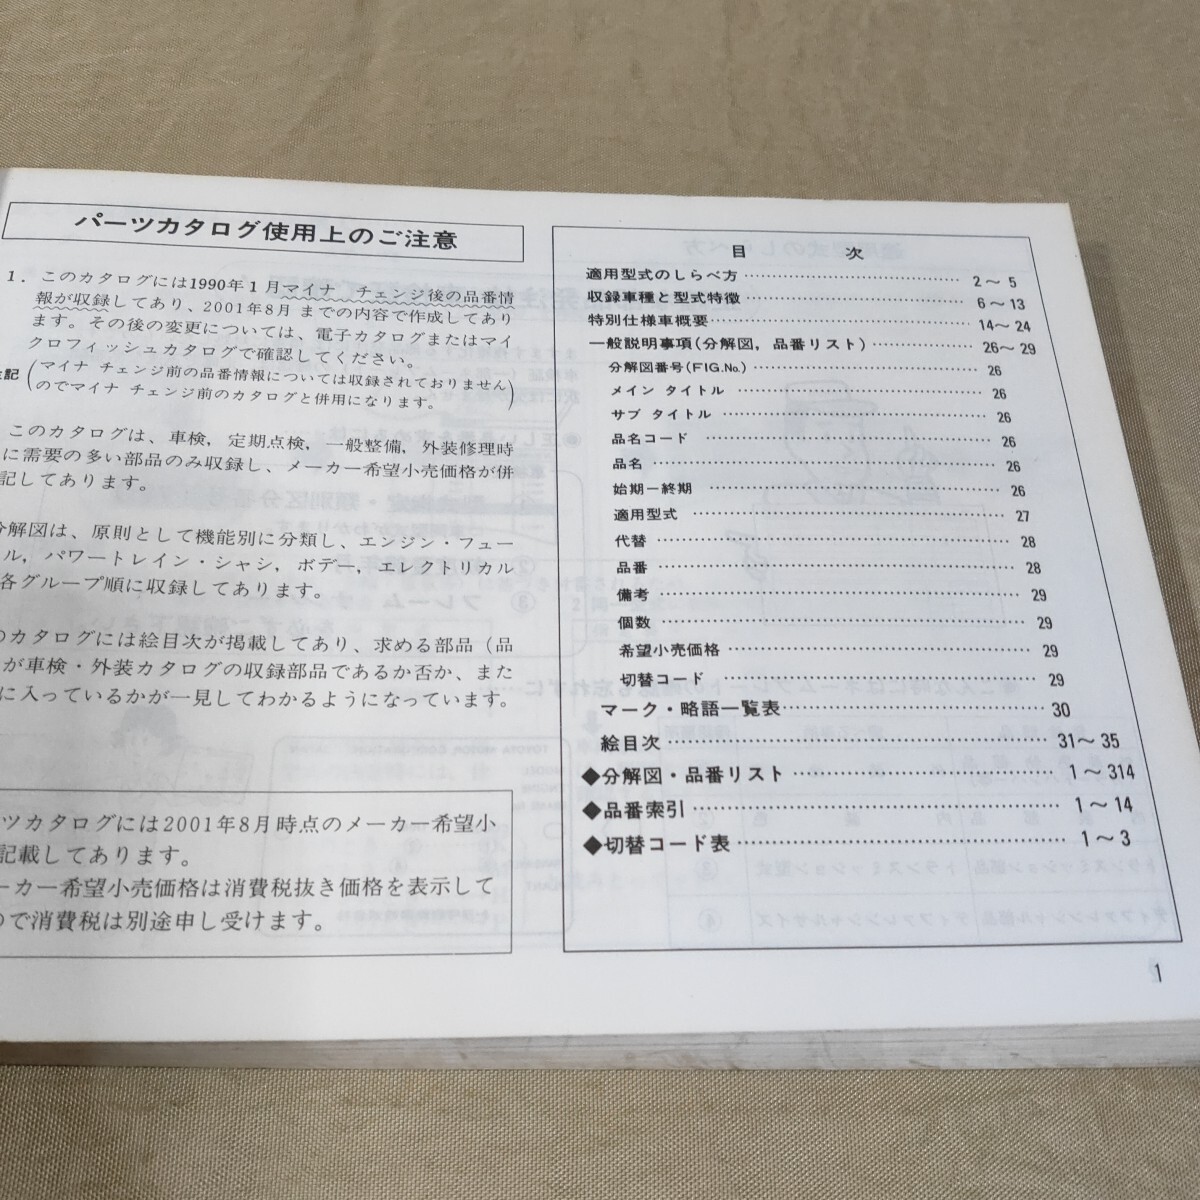 パーツカタログ使用上のご注意
1．このカタログには1990年1月マイナ チェンジ後の品番情
報が収録してあり、2001年8月 までの内容で作成してあり
ます。その後の変更については、電子カタログまたはマイ
クロフィッシュカタログで確認してください。
記(マイナ チェンジ前の品番情報については収録されておりません
のでマイナ チェンジ前のカタログと併用になります。)
このカタログは、車検，定期点検，一般整備，外装修理時
に需要の多い部品のみ収録し、メーカー希望小売価格が併
記してあります。
分解図は、原則として機能別に分類し、エンジン・フュー
ル，パワートレイン・シャシ，ボデー，エレクトリカル
各グループ順に収録してあります。
のカタログには絵目次が掲載してあり、求める部品（品
が車検・外装カタログの収録部品であるか否か、また
に入っているかが一見してわかるようになっています。
ツカタログには2001年8月時点のメーカー希望小
記載してあります。
ーカー希望小売価格は消費税抜き価格を表示して
ので消費税は別途申し受けます。
目 次
適用型式のしらべ方 …… 2～5
収録車種と型式特徴 …… 6～13
特別仕様車概要 …… 14～24
一般説明事項(分解図，品番リスト) …… 26～29
分解図番号(FIG.No.) …… 26
メイン タイトル …… 26
サブ タイトル …… 26
品名コード …… 26
品名 …… 26
始期ー終期 …… 26
適用型式 …… 27
代替 …… 28
品番 …… 28
備考 …… 29
個数 …… 29
希望小売価格 …… 29
切替コード …… 29
マーク・略語一覧表 …… 30
絵目次 …… 31～35
◆分解図・品番リスト …… 1～314
◆品番索引 …… 1～14
◆切替コード表 …… 1～3
1